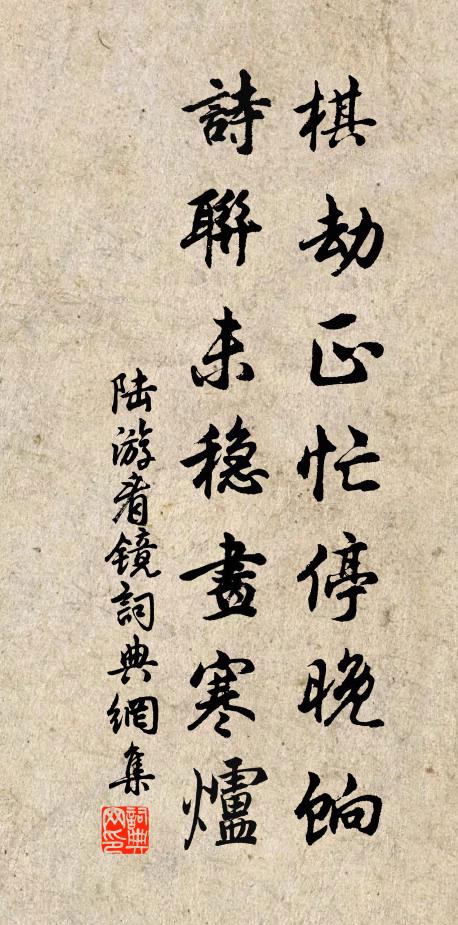 棋劫正忙停晚餉
詩聯未穩畫寒爐
陆游看镜詞典網集
詞典网印